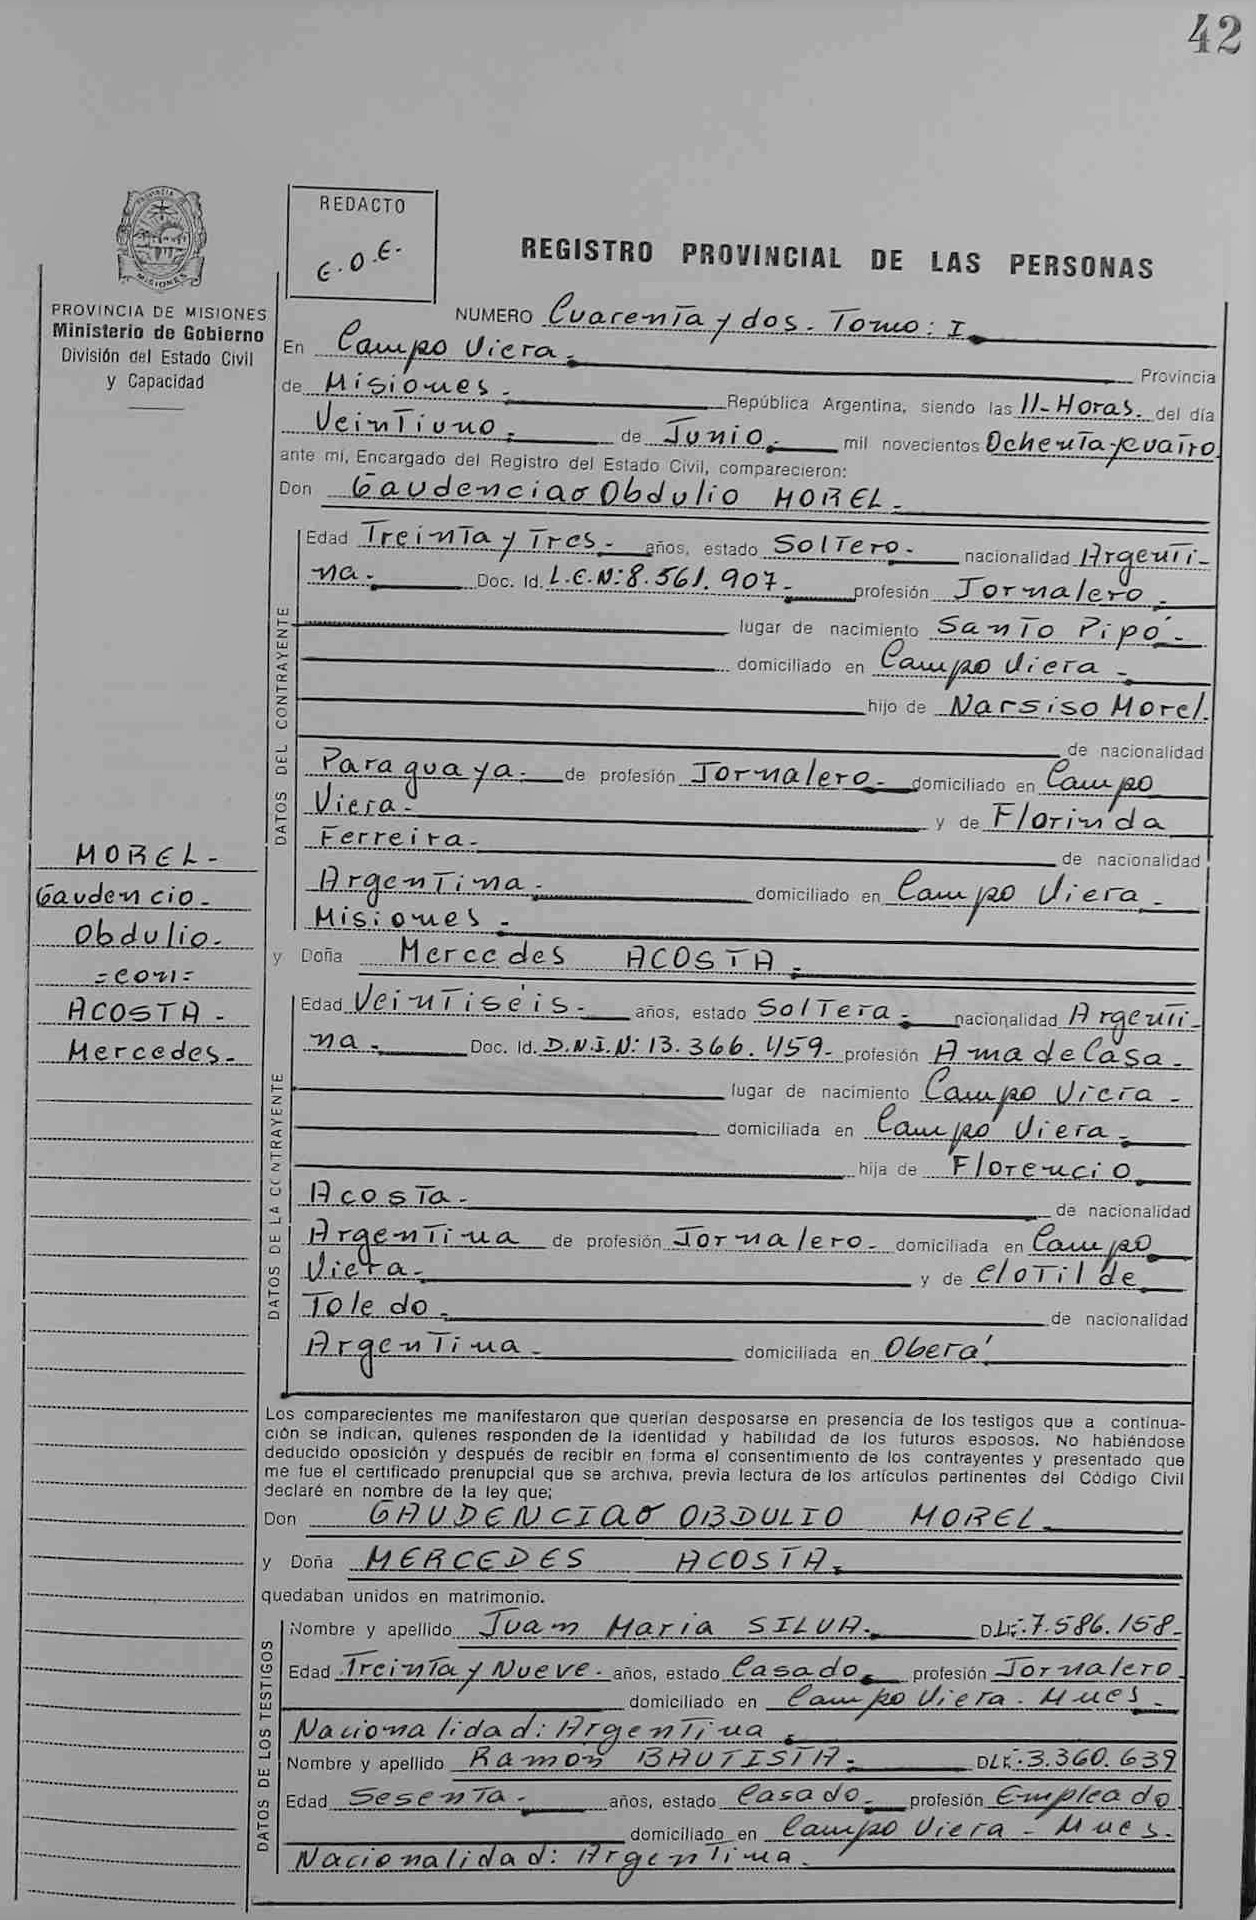 42
PROVINCIA
MISIONES
PROVINCIA DE MISIONES
Ministerio de Gobierno
División del Estado Civil
y Capacidad
REDACTO
E.O.E.
REGISTRO PROVINCIAL DE LAS PERSONAS
NUMERO Cuarenta y dos. Tomo: I
En Campo Viera. Provincia
de Misiones. República Argentina, siendo las 11-Horas. del día
Veintiuno. de Junio. mil novecientos Ochenta y cuatro
ante mí, Encargado del Registro del Estado Civil, comparecieron:
Don Gaudenciao Obdulio MOREL.
DATOS DEL CONTRAYENTE
Edad Treinta y Tres. años, estado Soltero. nacionalidad Argenti-
na. Doc. Id. L.E.N: 8.561.907. profesión Jornalero.
lugar de nacimiento Santo Pipó.
domiciliado en Campo Viera.
hijo de Narsiso Morel.
de nacionalidad
Paraguaya. de profesión Jornalero. domiciliado en Campo
Viera. y de Florinda
Ferreira. de nacionalidad
Argentina. domiciliado en Campo Viera.
Misiones.
MOREL-
Gaudencio.
Obdulio.
=con=
ACOSTA-
Mercedes.
y Doña Mercedes ACOSTA.
DATOS DE LA CONTRAYENTE
Edad Veintiséis. años, estado Soltera. nacionalidad Argenti-
na. Doc. Id. D.N.I.N: 13.366.459. profesión Ama de Casa.
lugar de nacimiento Campo Viera.
domiciliada en Campo Viera.
hija de Florencio
Acosta. de nacionalidad
Argentina de profesión Jornalero. domiciliada en Campo
Viera. y de Clotilde
Toledo. de nacionalidad
Argentina. domiciliada en Oberá
Los comparecientes me manifestaron que querían desposarse en presencia de los testigos que a continua-
ción se indican, quienes responden de la identidad y habilidad de los futuros esposos. No habiéndose
deducido oposición y después de recibir en forma el consentimiento de los contrayentes y presentado que
me fue el certificado prenupcial que se archiva, previa lectura de los artículos pertinentes del Código Civil
declaré en nombre de la ley que;
Don GAUDENCIAO OBDULIO MOREL
y Doña MERCEDES ACOSTA.
quedaban unidos en matrimonio.
DATOS DE LOS TESTIGOS
Nombre y apellido Juan Maria SILVA. 7.586.158-
Edad Treinta y Nueve. años, estado Casado. profesión Jornalero
domiciliado en Campo Viera. Mnes.
Nacionalidad: Argentina.
Nombre y apellido Ramon BAUTISTA. 3.360.639
Edad Sesenta. años, estado Casado. profesión Empleado
domiciliado en Campo Viera - Mnes.
Nacionalidad: Argentina.